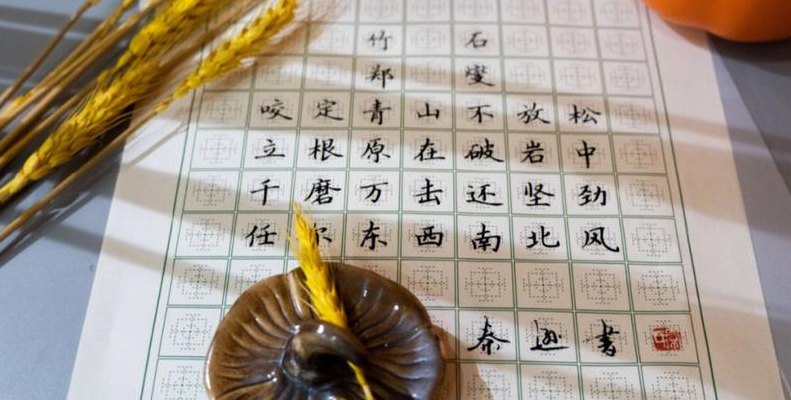 竹石
郑燮
咬定青山不放松
立根原在破岩中
千磨万击还坚劲
任尔东西南北风
秦 書